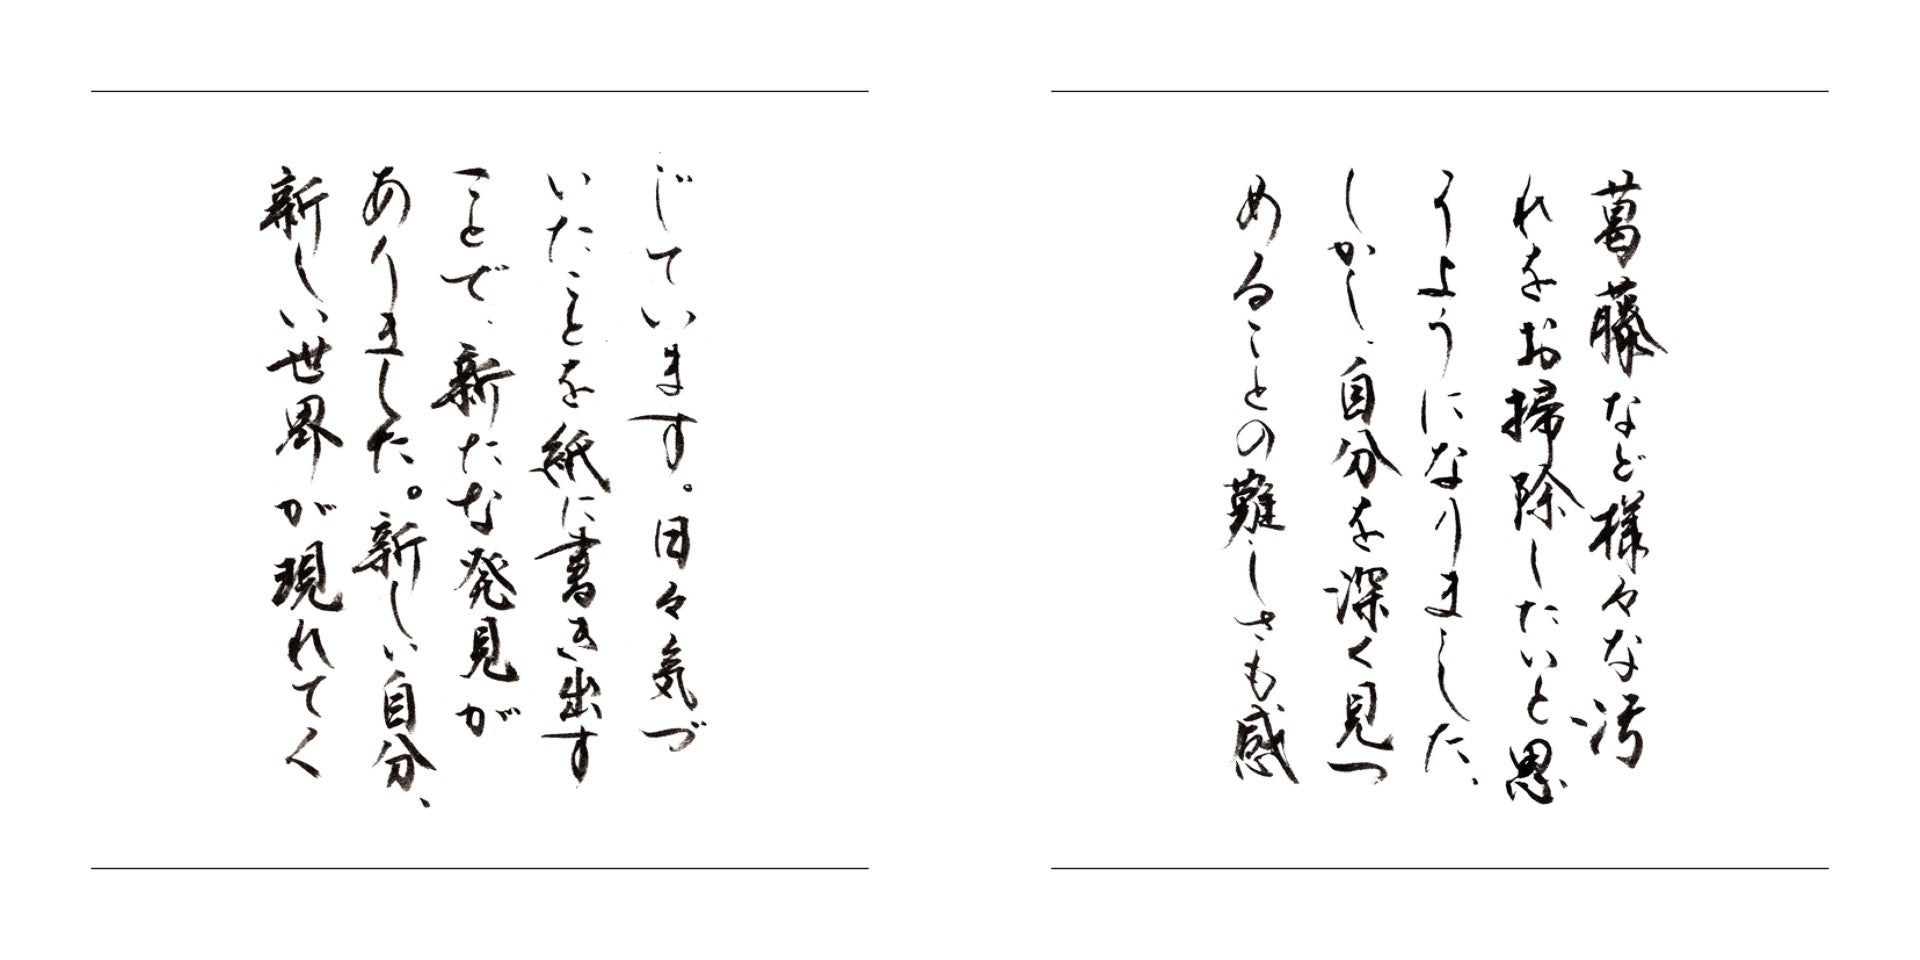 葛藤など様々な汚
れをお掃除したいと思
うようになりました、
しかし、自分を深く見つ
めることの難しさも感
じています。日々気づ
いたことを紙に書き出す
ことで、新たな発見が
ありました。新しい自分、
新しい世界が現れてく